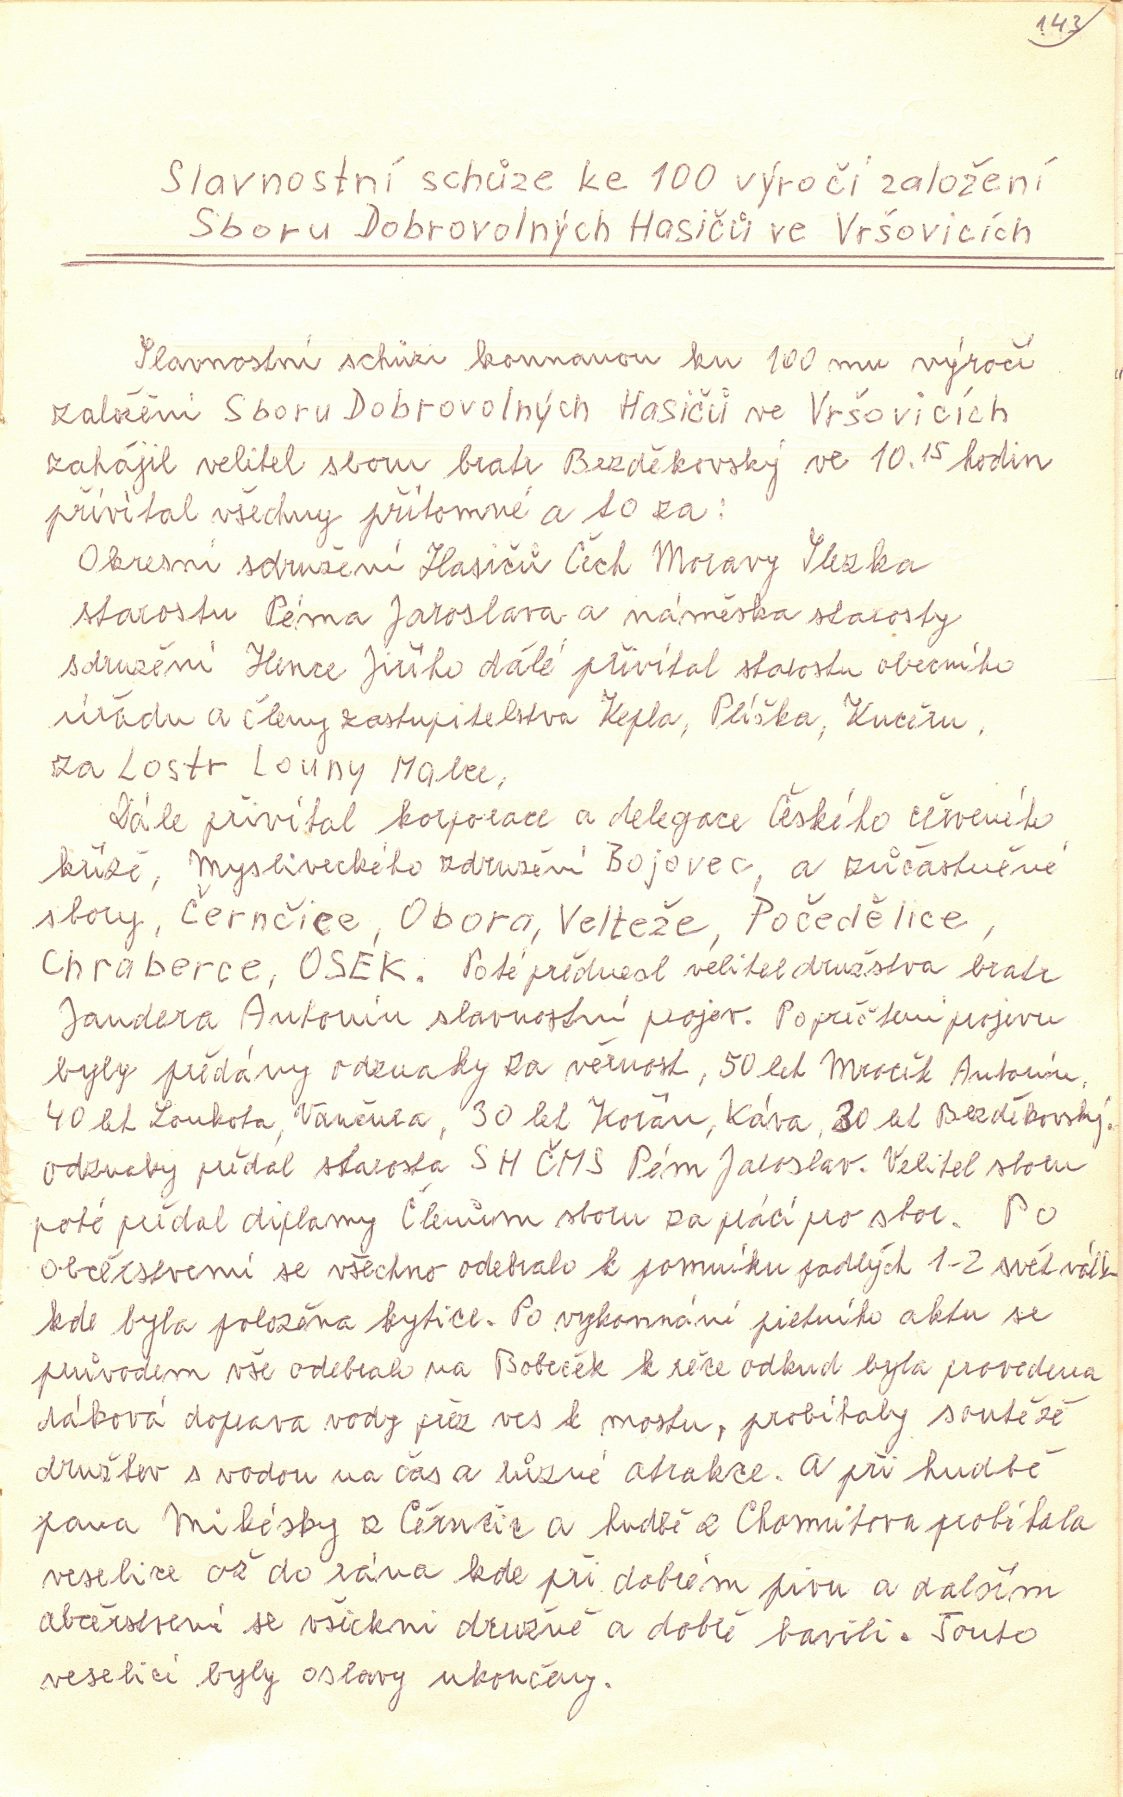 143
Slavnostní schůze ke 100 výročí založení
Sboru Dobrovolných Hasičů ve Vršovicích
Slavnostní schůzi konnanou ku 100 mu výročí
založení Sboru Dobrovolných Hasičů ve Vršovicích
zahájil velitel sboru bratr Bezděkovský ve 10.15 hodin
přivítal všechny přítomné a to za:
Okresní sdružení Hasičů Čech Moravy Slezka
starostu Péma Jaroslava a náměska starosty
sdružení Hence Jiřího dálé přivítal starostu obecního
úřadu a členy zastupitelstva Kepla, Plíška, Kučeru,
za Lostr Louny Malec,
Dále přivítal korporace a delegace Českého červeného
kříže, Mysliveckého združení Bojovec, a zůčástněné
sbory, Černčice, Obora, Velteže, Počedělice,
Chraberce, OSEK. Poté přednesl velitel družstva bratr
Jandera Antonín slavnostní projev. Po přečtení projevu
byly předány odznaky za věrnost, 50 let Mraček Antonín,
40 let Loukota, Vančura, 30 let Kořán, Káva, 30 let Bezděkovský.
odznaky předal starosta SH ČMS Pém Jaroslav. Velitel sboru
poté předal diplamy Členům sboru za prácí pro sbor. Po
občerstvení se všechno odebralo k pomníku padlých 1-2 svět válk
kde byla položena kytice. Po vykonnání pietního aktu se
průvodem vše odebralo na Bobeček k řeče odkud byla provedena
dáková doprava vody přez ves k mostu, probíhaly soutěžě
družtev s vodou na čas a různé atrakce. A při hudbě
pana Mikésky z Černčic a hudbě z Chomutova probíhala
veselice až do rána kde při dobrém pivu a dalším
občerstvení se všickni družně a dobře bavili. Touto
veselicí byly oslavy ukončeny.